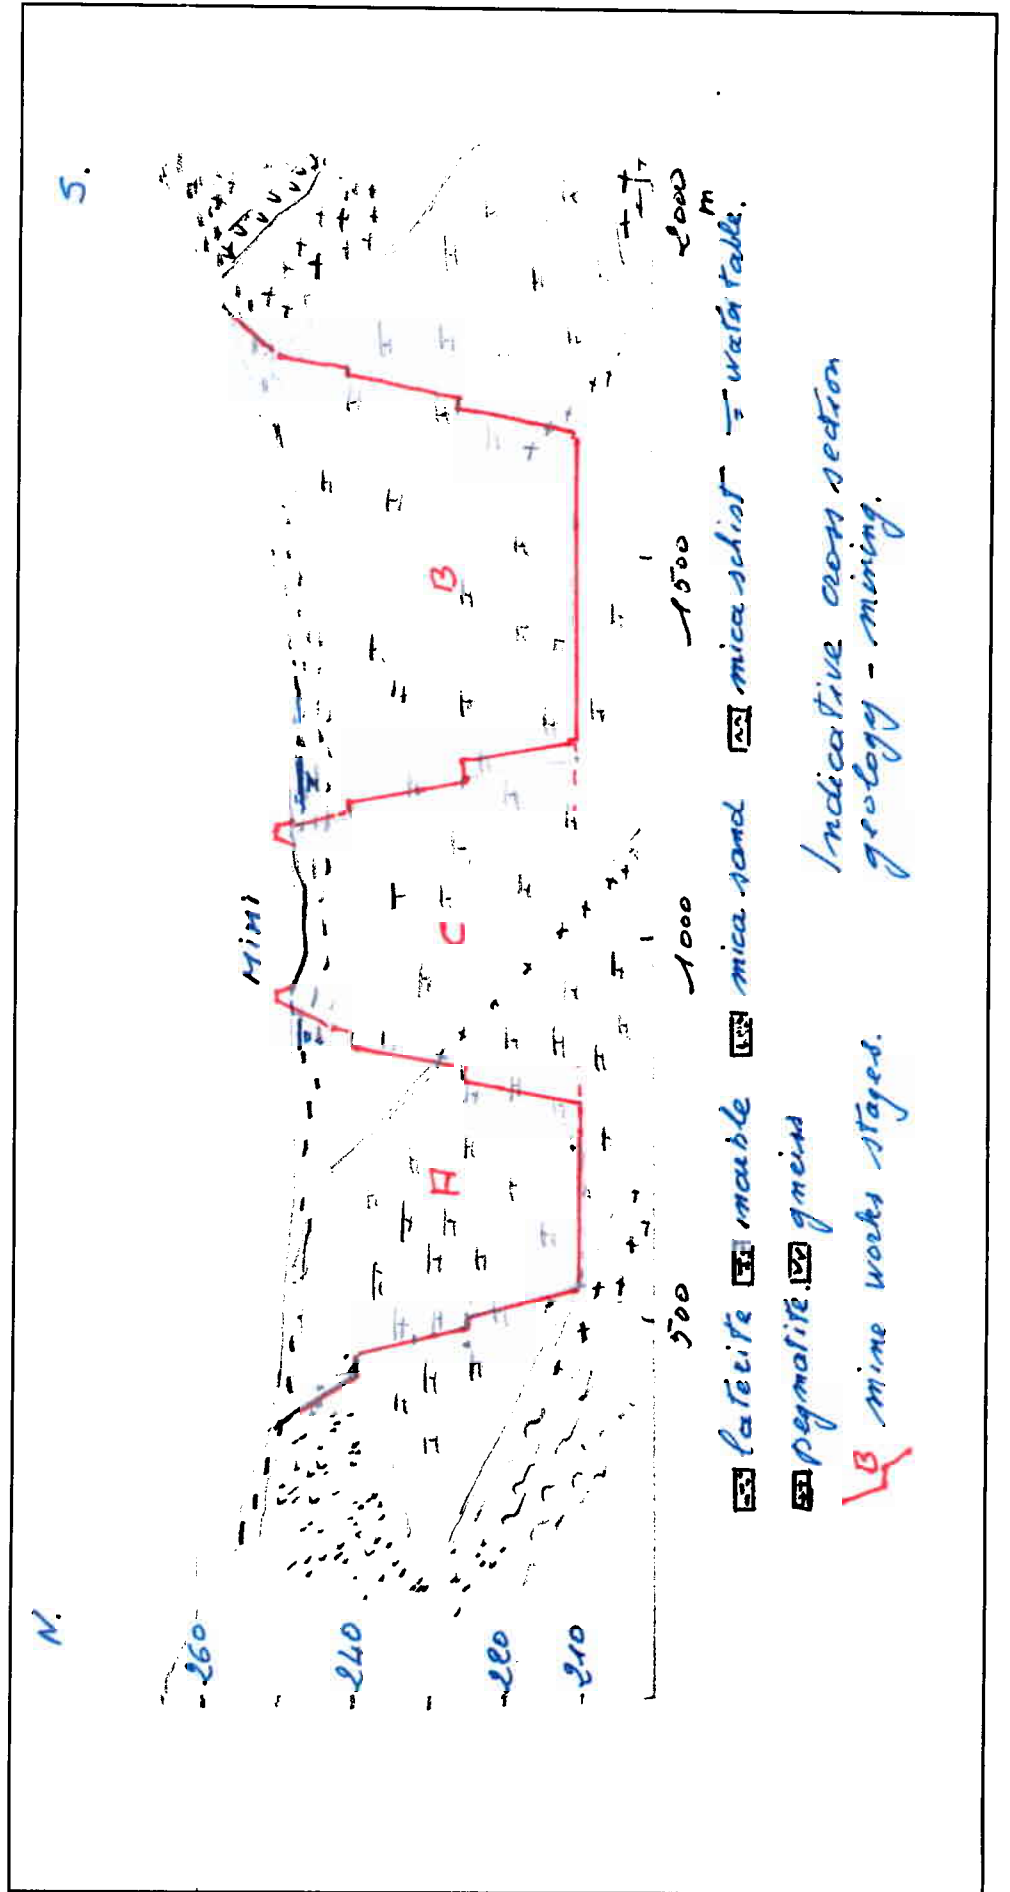 N.
S.
Mimi
260
240
220
210
A
C
B
500
1000
1500
2000
m
laterite marble mica sand mica schist watertable.
pegmatite. gneiss
B mine works stages.
Indicative cross section
geology - mining.